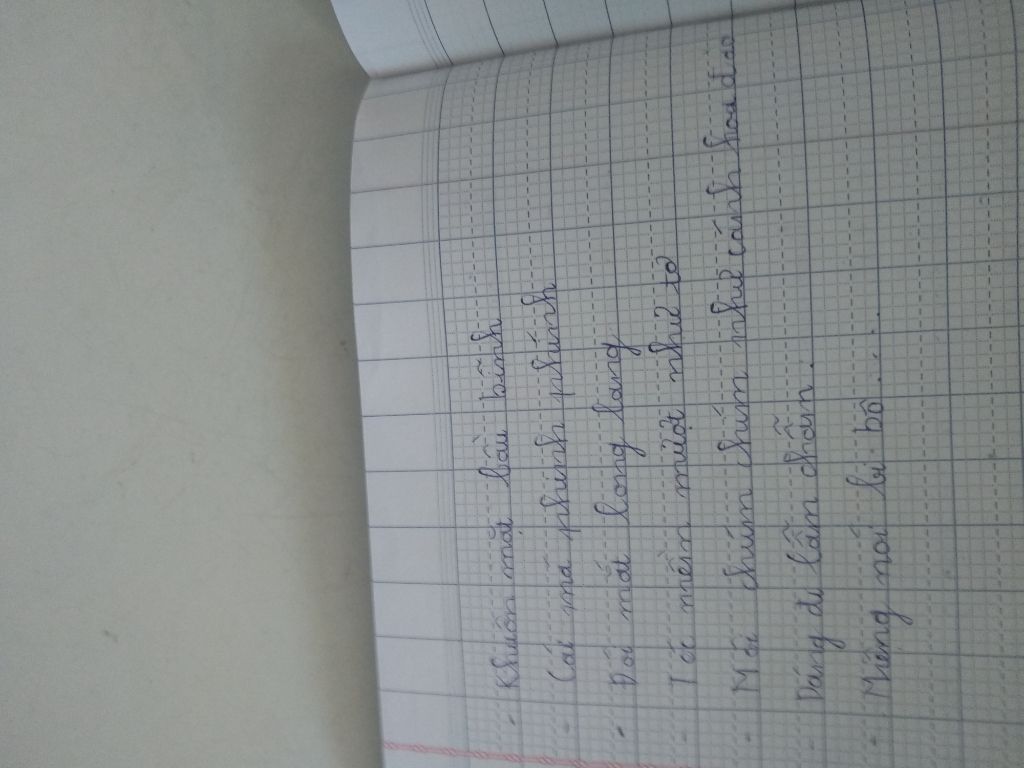 - Khuôn mặt bầu bĩnh
- Cái má phúnh phính
- Đôi mắt long lanh
- Tóc mềm mượt như tơ
- Môi chúm chím như cánh hoa đào
Dáng đi lẫn chẫn.
- Miệng nói bi bô......